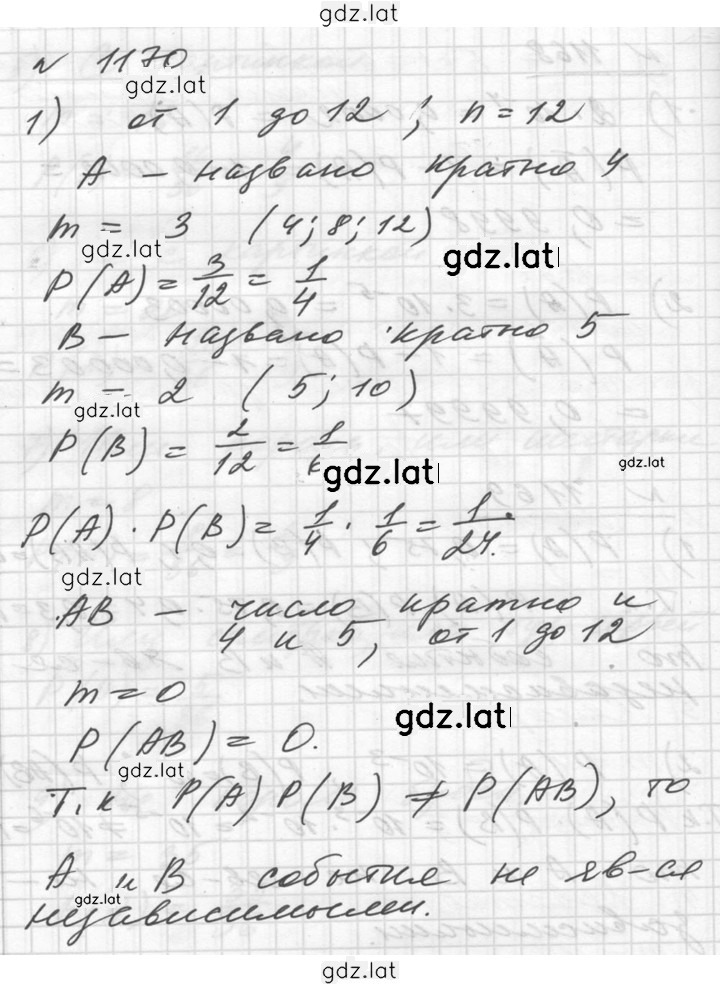 gdz.lat
№ 1170
gdz.lat
1) от 1 до 12; n = 12
A – названо кратно 4
m = 3 (4; 8; 12)
gdz.lat
gdz.lat
P(A) = 3/12 = 1/4
B – названо кратно 5
m – 2 (5; 10)
gdz.lat
P(B) = 2/12 = 1/6
gdz.lat
gdz.lat
P(A) · P(B) = 1/4 · 1/6 = 1/24.
gdz.lat
AB – число кратно и
4 и 5, от 1 до 12
m = 0
gdz.lat
P(AB) = 0.
gdz.lat
Т.к P(A) P(B) ≠ P(AB), то
A и B события не яв-ся
gdz.lat
независимыми.
gdz.lat